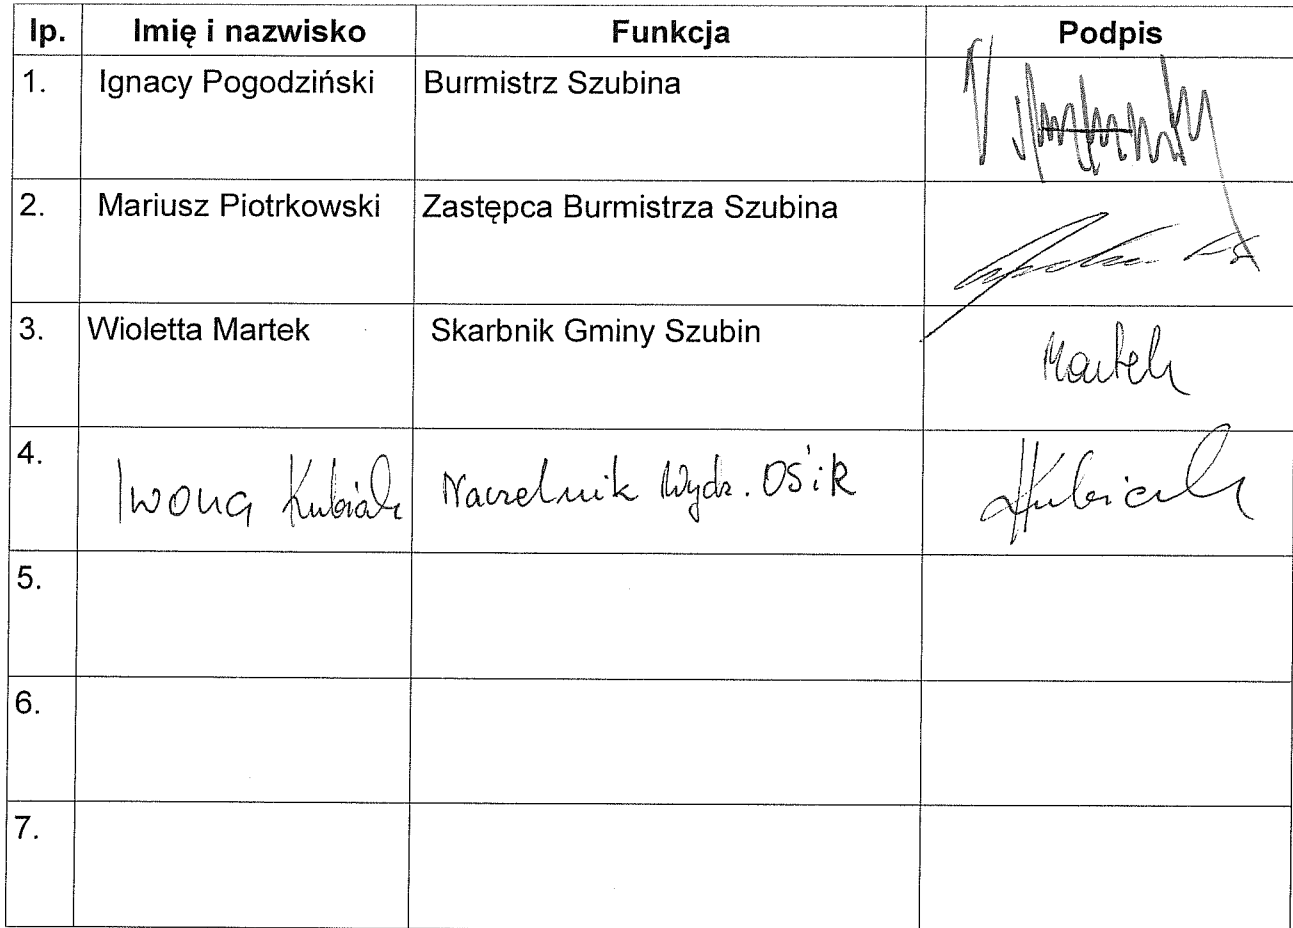 lp. Imię i nazwisko Funkcja Podpis
1. Ignacy Pogodziński Burmistrz Szubina
2. Mariusz Piotrkowski Zastępca Burmistrza Szubina
3. Wioletta Martek Skarbnik Gminy Szubin Martek
4. Iwona Kubiak Naczelnik Wydz. OŚiR Kubiak
5.
6.
7.